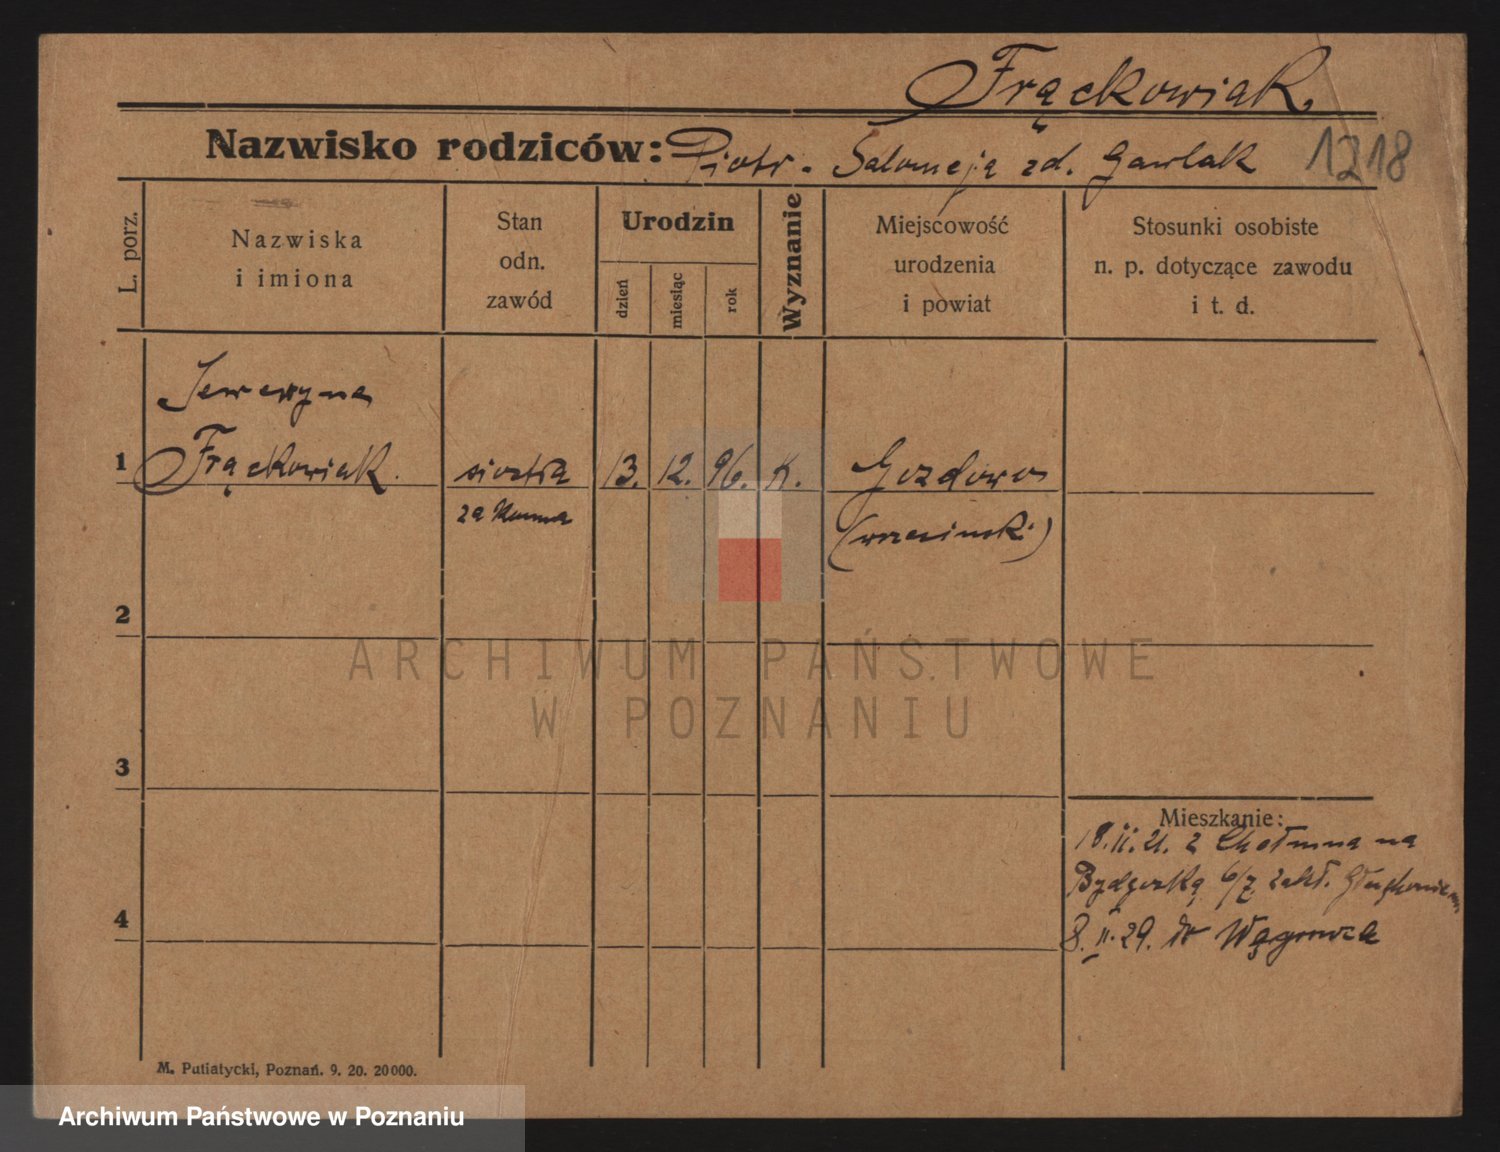 Frąckowiak,
Nazwisko rodziców: Piotr - Salomeja zd. Gawlak 1218
L. porz.
Nazwiska
i imiona
Stan
odn.
zawód
Urodzin
dzień
miesiąc
rok
Wyznanie
Miejscowość
urodzenia
i powiat
Stosunki osobiste
n. p. dotyczące zawodu
i t. d.
Seweryna
1 Frąckowiak. siostra 13. 12. 96. K. Gozdowo
zakonna (wrzesiński)
2
ARCHIWUM PAŃSTWOWE
W POZNANIU
3
Mieszkanie:
18.II.21. z Chełmna na
Bydgoską 6/7 zakł. Głuchoniem
4
8.II.29. do Wągrowca
M. Putiatycki, Poznań. 9. 20. 20000.
Archiwum Państwowe w Poznaniu